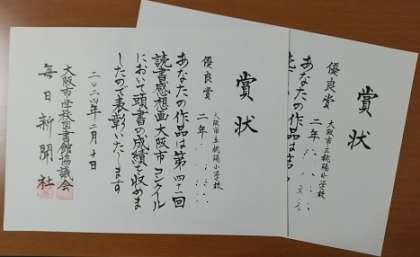 賞状
優良賞
大阪市立桃陽小学校
二年
あなたの作品は第四十一回
読書感想画大阪市コンクール
において頭書の成績を収めま
したので表彰いたします
二〇二四年二月十日
大阪市学校図書館協議会
毎日新聞社
賞状
優良賞
大阪市立桃陽小学校
二年
あなたの作品は